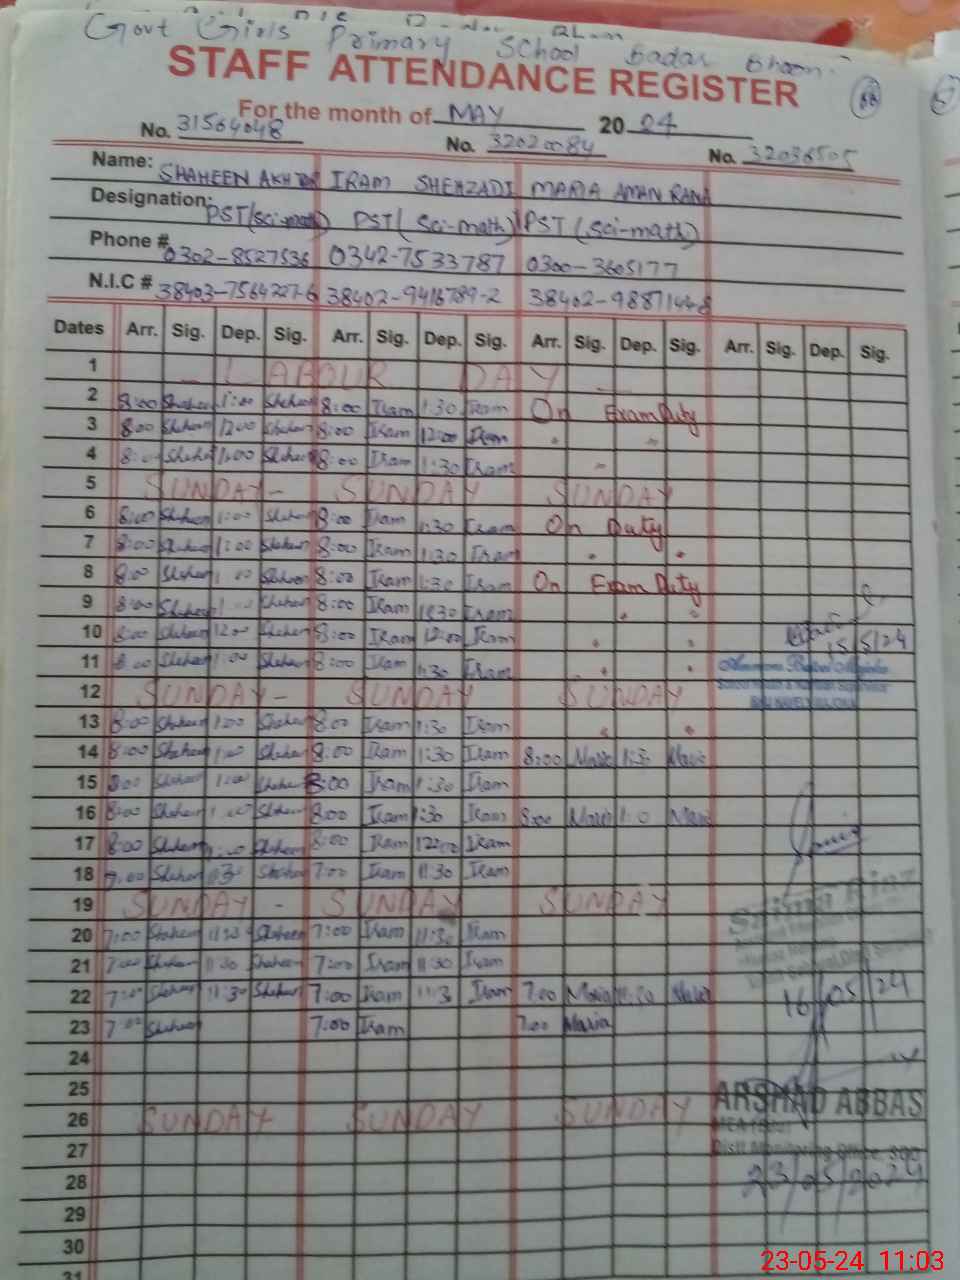 Govt Girls Primary School Badar Bhoon.
STAFF ATTENDANCE REGISTER
For the month of MAY 2024
No. 31564048 No. 32020084 No. 32036505
Name: SHAHEEN AKHTAR IRAM SHEHZADI MARIA AMAN RANA
Designation: PST(sci-math) PST(Sci-math) PST(sci-math)
Phone # 0302-8527536 0342-7533787 0300-3605177
N.I.C # 38403-7564227-6 38402-9416789-2 38402-9887144-8
Dates Arr. Sig. Dep. Sig. Arr. Sig. Dep. Sig. Arr. Sig. Dep. Sig. Arr. Sig. Dep. Sig.
1 - LABOUR DAY -
2 8:00 Shaheen 1:00 Shaheen 8:00 Iram 1:30 Iram On Exam Duty
3 8:00 Shaheen 12:00 Shaheen 8:00 Iram 12:00 Iram "
4 8:00 Shaheen 1:00 Shaheen 8:00 Iram 1:30 Iram "
5 SUNDAY - SUNDAY SUNDAY
6 8:00 Shaheen 1:00 Shaheen 8:00 Iram 1:30 Iram On Duty
7 8:00 Shaheen 1:00 Shaheen 8:00 Iram 1:30 Iram " "
8 8:00 Shaheen 1:00 Shaheen 8:00 Iram 1:30 Iram On Exam Duty
9 8:00 Shaheen 1:00 Shaheen 8:00 Iram 1:30 Iram " "
10 8:00 Shaheen 12:00 Shaheen 8:00 Iram 12:00 Iram " " 15/5/24
11 8:00 Shaheen 1:00 Shaheen 8:00 Iram 1:30 Iram " "
12 SUNDAY - SUNDAY SUNDAY
13 8:00 Shaheen 1:00 Shaheen 8:00 Iram 1:30 Iram " "
14 8:00 Shaheen 1:00 Shaheen 8:00 Iram 1:30 Iram 8:00 Maria 1:30 Maria
15 8:00 Shaheen 1:00 Shaheen 8:00 Iram 1:30 Iram
16 8:00 Shaheen 1:00 Shaheen 8:00 Iram 1:30 Iram 8:00 Maria Maria
17 8:00 Shaheen Shaheen 8:00 Iram 12:00 Iram
18 7:00 Shaheen 11:30 Shaheen 7:00 Iram 11:30 Iram
19 SUNDAY - SUNDAY SUNDAY
20 7:00 Shaheen 11:30 Shaheen 7:00 Iram 11:30 Iram
21 7:00 Shaheen 11:30 Shaheen 7:00 Iram 11:30 Iram
22 7:00 Shaheen 11:30 Shaheen 7:00 Iram 11:3 Iram 7:00 Maria 11:30 Maria 16/05/24
23 7:00 Shaheen 7:00 Iram 7:00 Maria
24
25
ARSHAD ABBAS
26 SUNDAY SUNDAY SUNDAY
27
Distt Monitoring Office, SGD
28 23/05/2024
29
30
31
23-05-24 11:03